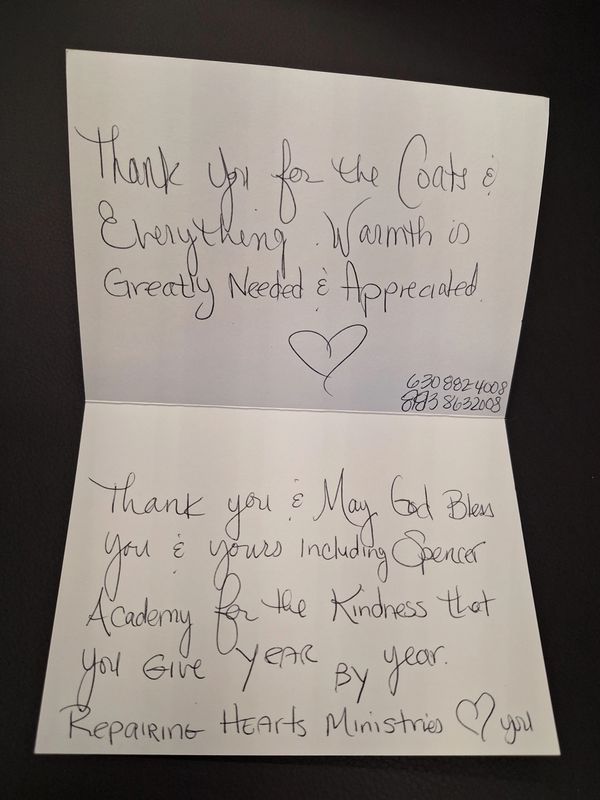 Thank you for the Coats &
Everything. Warmth is
Greatly Needed & Appreciated.
630 882-4008
8632008
Thank you & May God Bless
You & yours including Spencer
Academy for the Kindness that
you Give YEAR BY year.
Repairing Hearts Ministries ♡ you